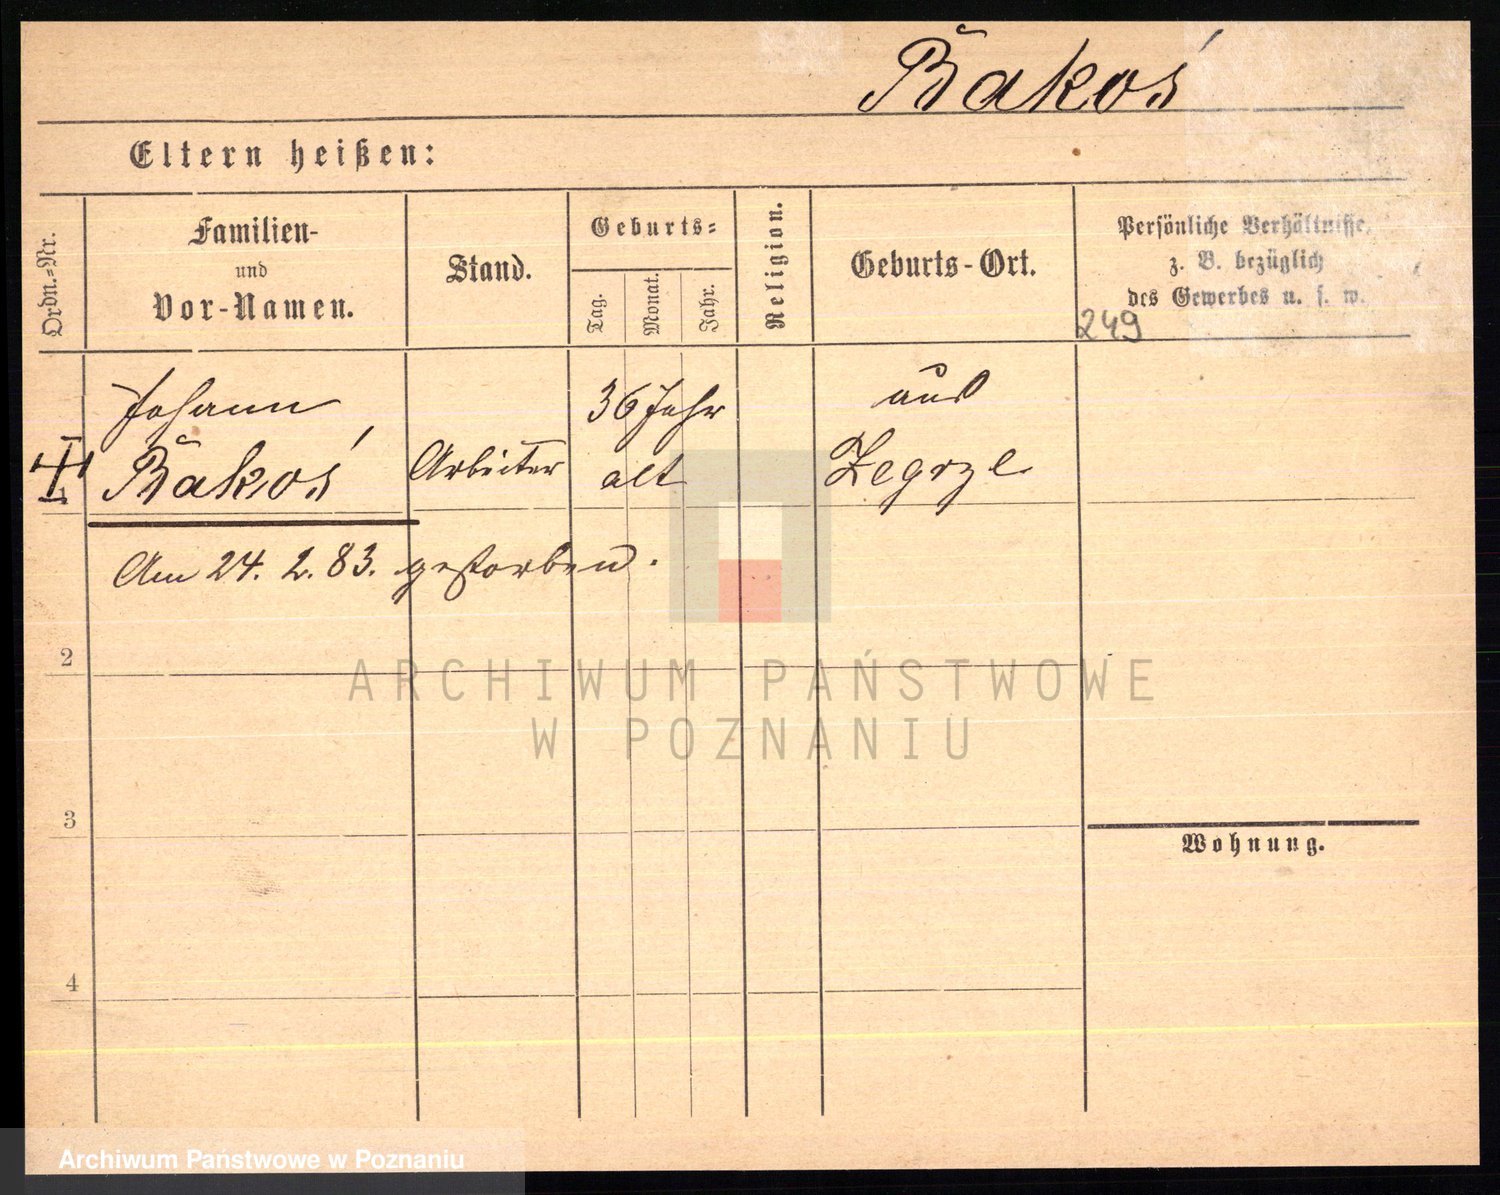 Bakoś
Eltern heißen:
Ordn.=Nr.
Familien-
und
Vor-Namen.
Stand.
Geburts=
Tag.
Monat.
Jahr.
Religion.
Geburts-Ort.
Persönliche Verhältnisse,
z. B. bezüglich
des Gewerbes u. s. w.
249
Johann
Bakoś
Arbeiter
36 Jahr
alt
aus
Zegrze
Am 24. 2. 83. gestorben.
2
3
4
Wohnung.
ARCHIWUM PAŃSTWOWE
W POZNANIU
Archiwum Państwowe w Poznaniu